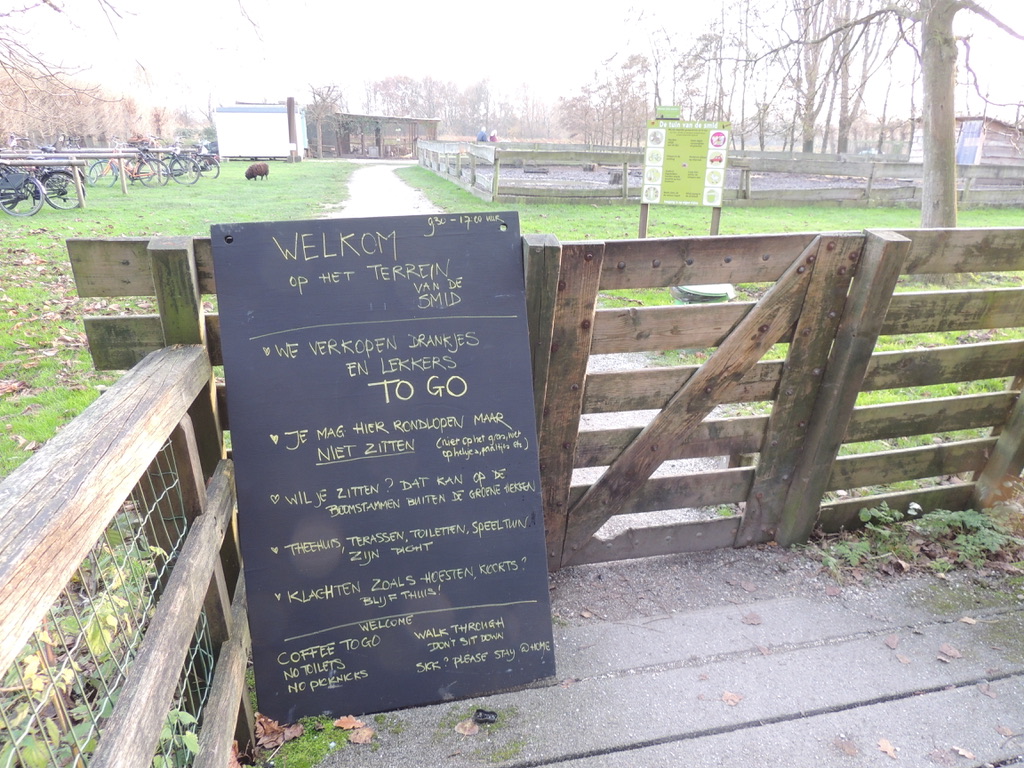 930 - 17:00 UUR
WELKOM
OP HET TERREIN
VAN DE
SMID
WE VERKOPEN DRANKJES
EN LEKKERS
TO GO
JE MAG HIER RONDLOPEN MAAR
NIET ZITTEN (niet op het gras, niet
op hekjes, bankjes etc)
WIL JE ZITTEN? DAT KAN OP DE
BOOMSTAMMEN BUITEN DE GROENE HEKKEN
THEEHUIS, TERASSEN, TOILETTEN, SPEELTUIN
ZIJN DICHT
KLACHTEN ZOALS HOESTEN, KOORTS?
BLIJF THUIS!
WELCOME
COFFEE TO GO
NO TOILETS
NO PICKNICKS
WALK THROUGH
DON'T SIT DOWN
SICK? PLEASE STAY @ HOME
De tuin van de smid